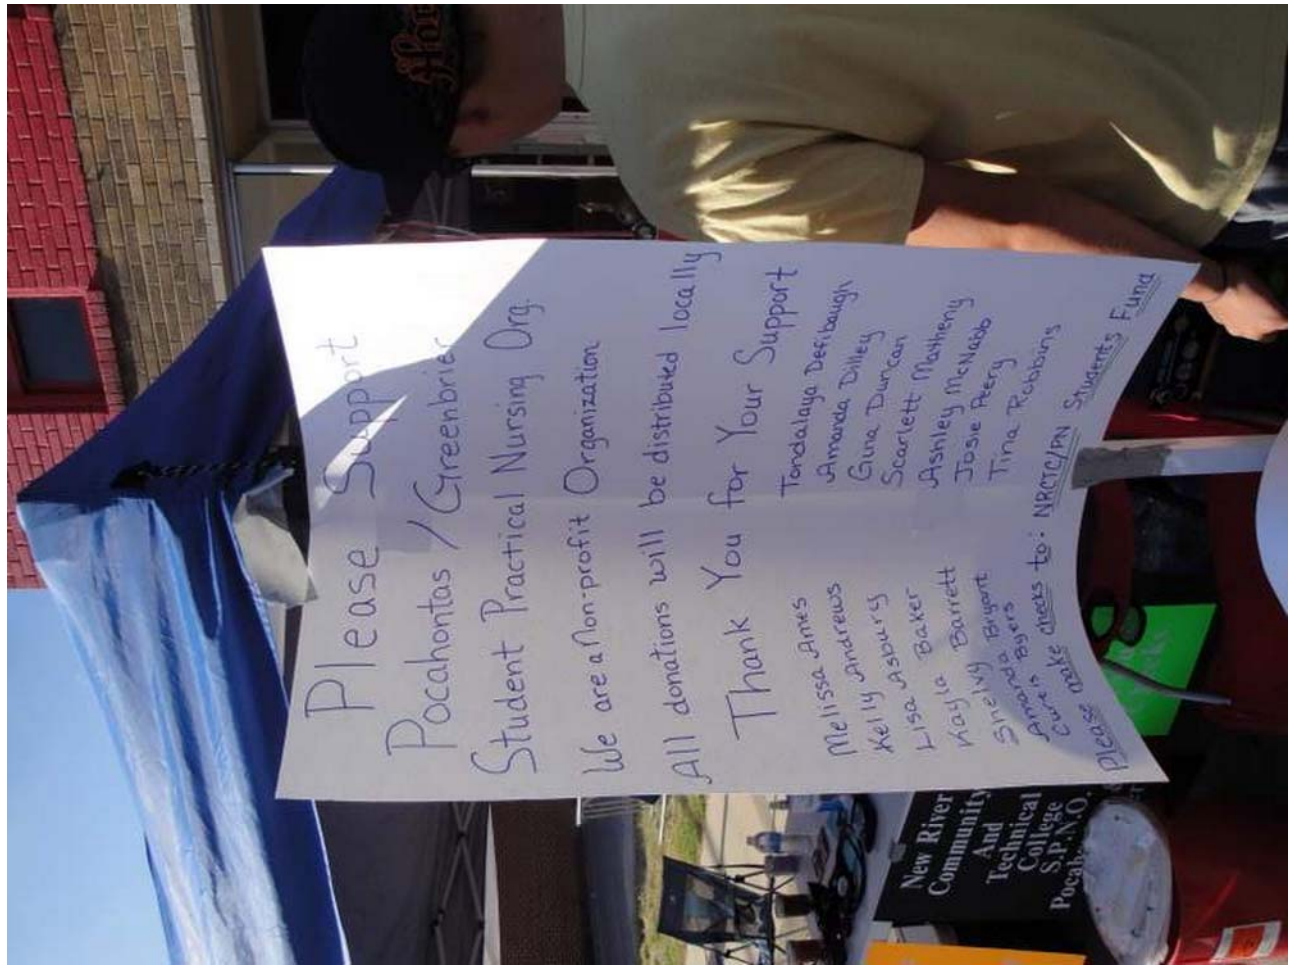 Please Support
Pocahontas / Greenbrier
Student Practical Nursing Org.
We are a Non-profit Organization
All donations will be distributed locally
Thank You for Your Support
Melissa Ames
Melody Andrews
Kelly Asbury
Lisa Baker
Kayla Barrett
Shelvy Bryant
Amanda Byers
Curtis
Tondalaya Defibaugh
Amanda Dilley
Guna Duncan
Scarlett
Ashley Matheny
Josie McNabb
Tina Robbins
Please make checks to: NRCTC/PN Students Fund
New River
Community
And
Technical
College
S.P.N.O.